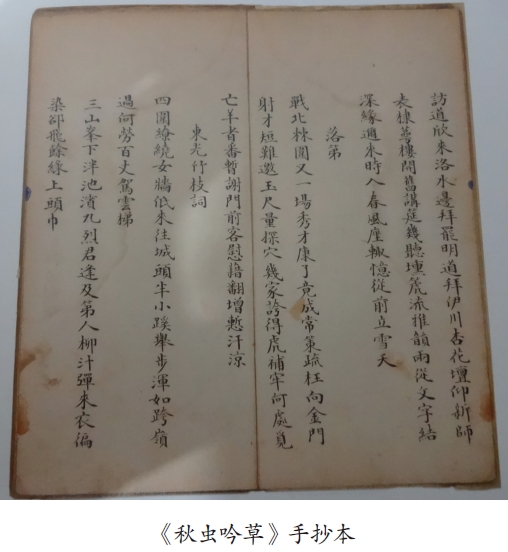 訪道欣来洛水邊拜罷明道拜伊川杏花壇仰新師
表棣萼樓開舊講庭幾聽壎箎流雅韻兩從文字結
深緣邇来時入春風座輙憶從前立雪天
落第
戰北棘闈又一場秀才康了竟成常策疏枉向金門
射才短難邀玉尺量探穴幾家誇得虎補牢何處覓
亡羊者番暫謝門前客慰藉翻增愁汗涼
東光竹枝詞
四圍繚繞女牆低来往城頭半小蹊舉步渾如跨嶺
過何勞百丈駕雲梯
三山峯下泮池濱九烈君逢及第人柳汁彈来衣徧
染卻飛餘綠上頭巾
《秋虫吟草》手抄本